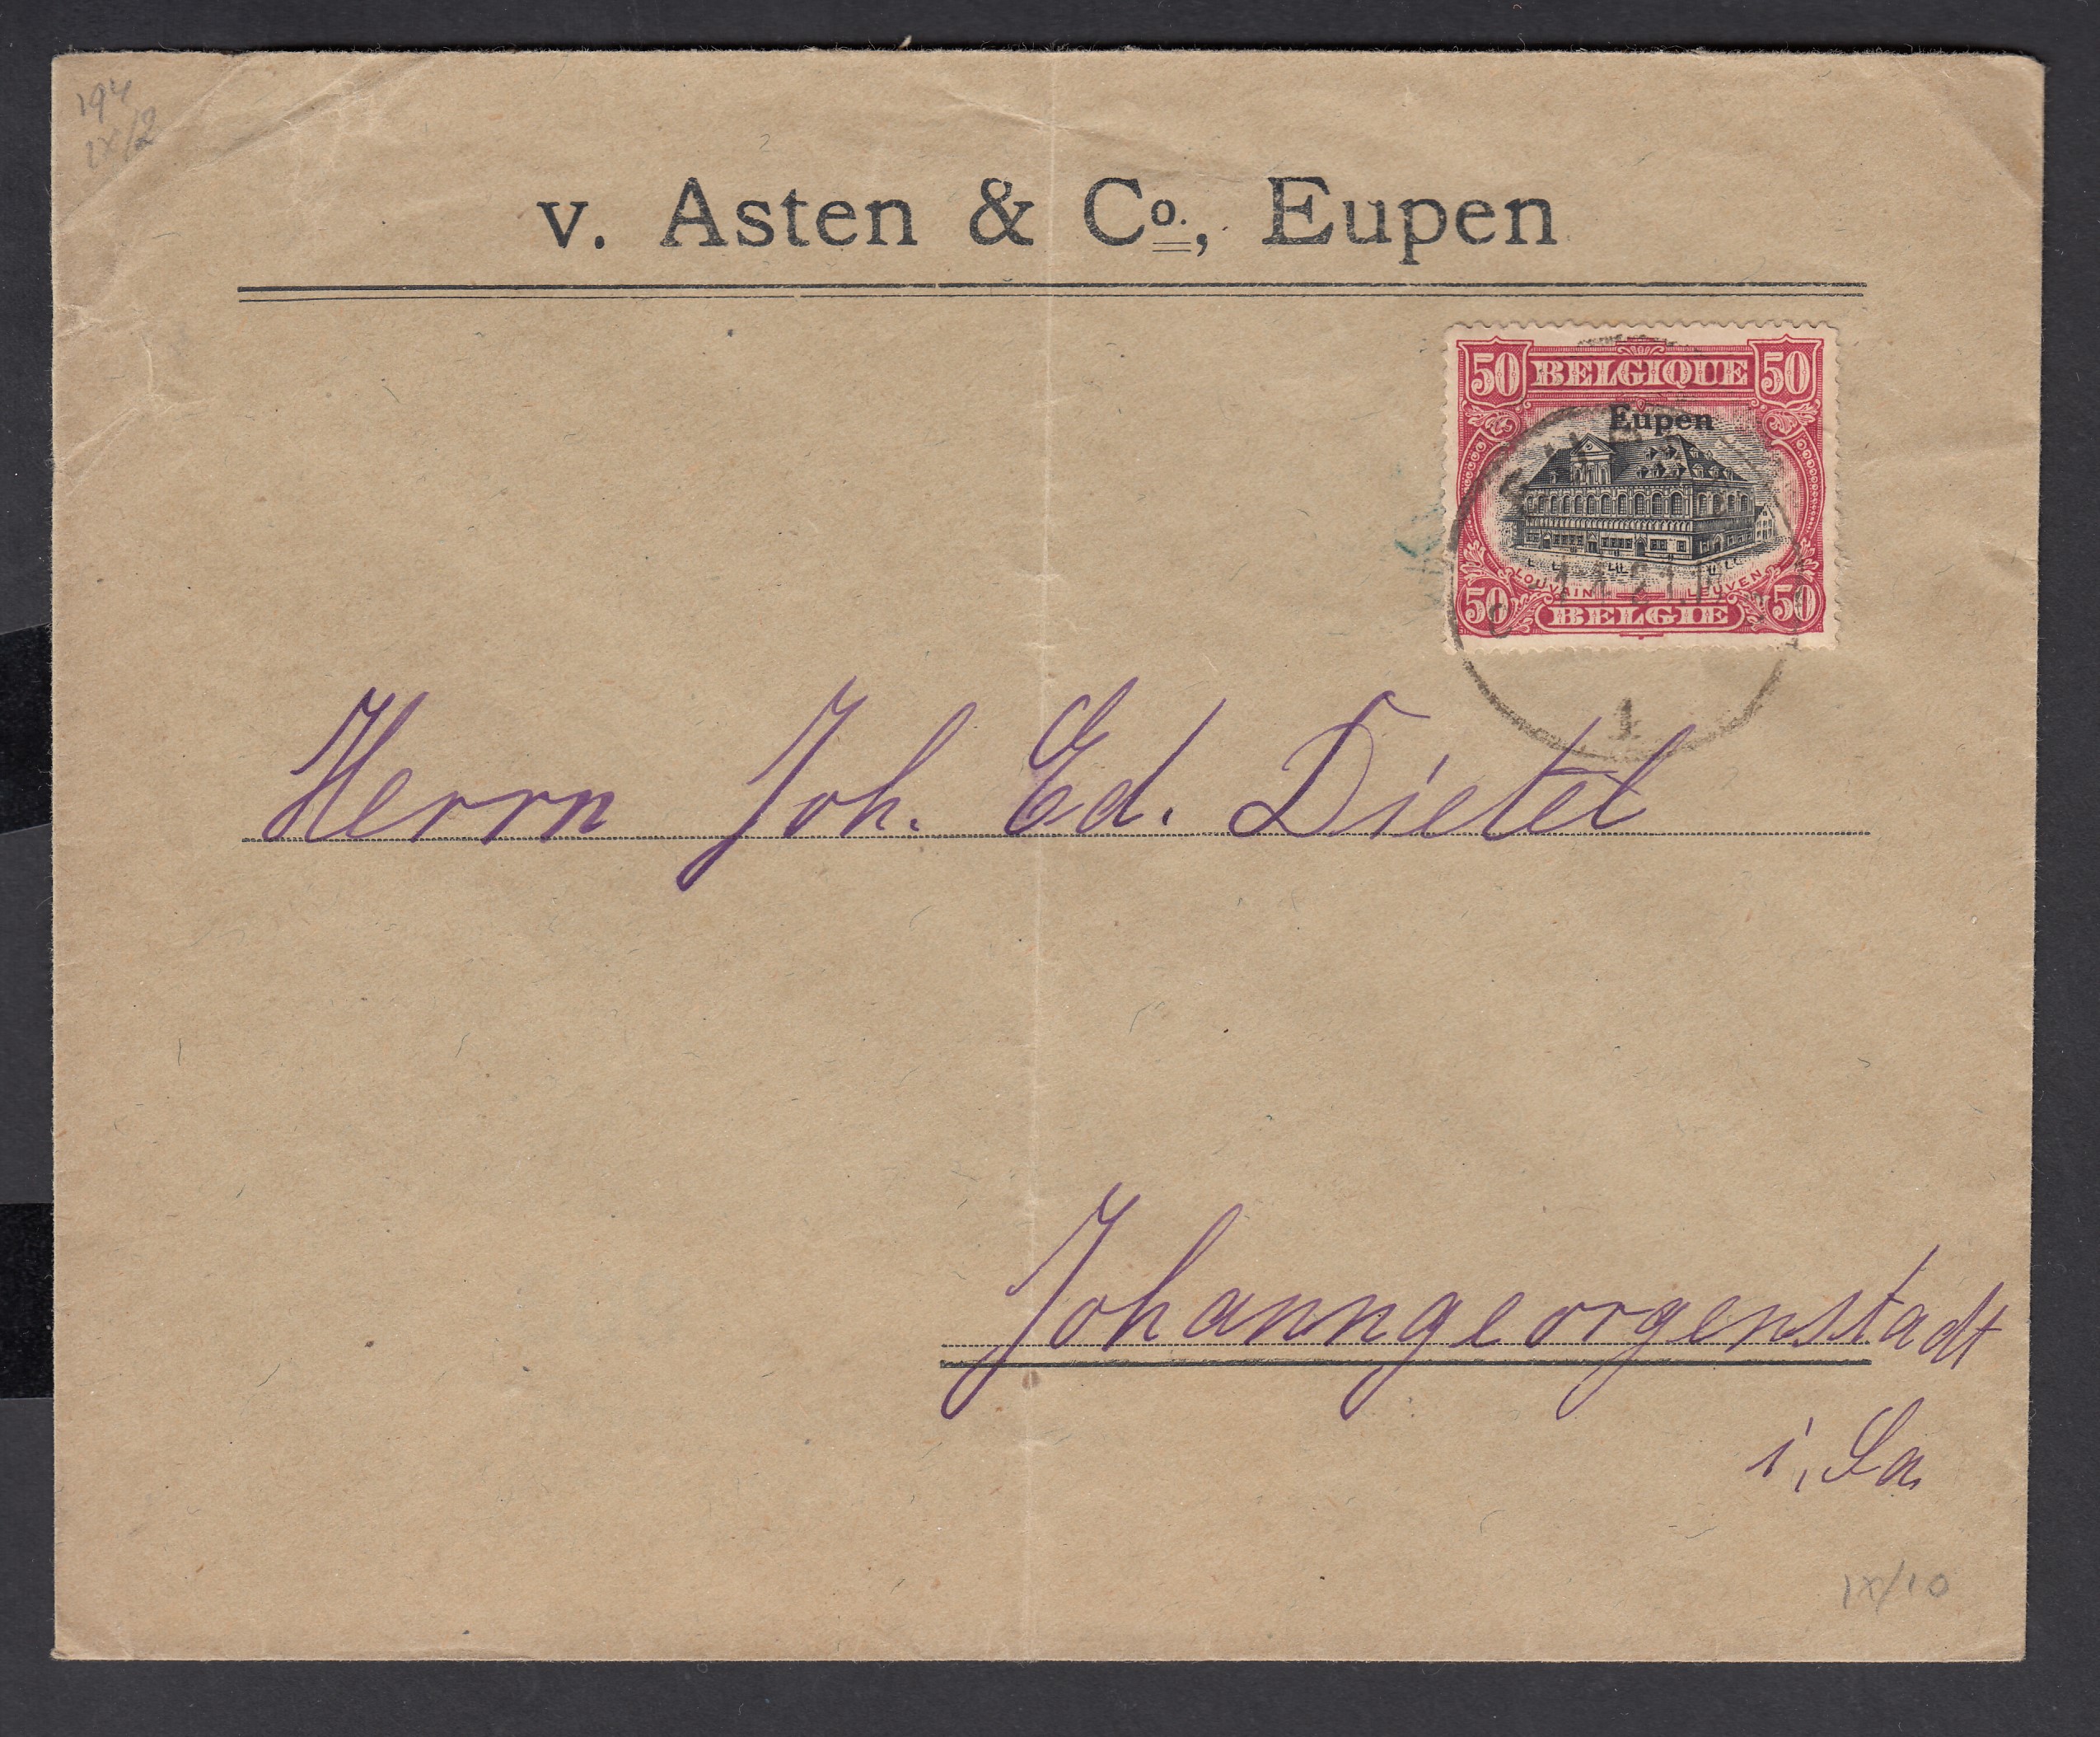 194
IX/2
v. Asten & Co., Eupen
50 BELGIQUE 50
Eupen
LOUVAIN LEUVEN
50 BELGIE 50
1
Herrn Joh. Ed. Dietel
Johanngeorgenstadt
i. Sa.
IX/10